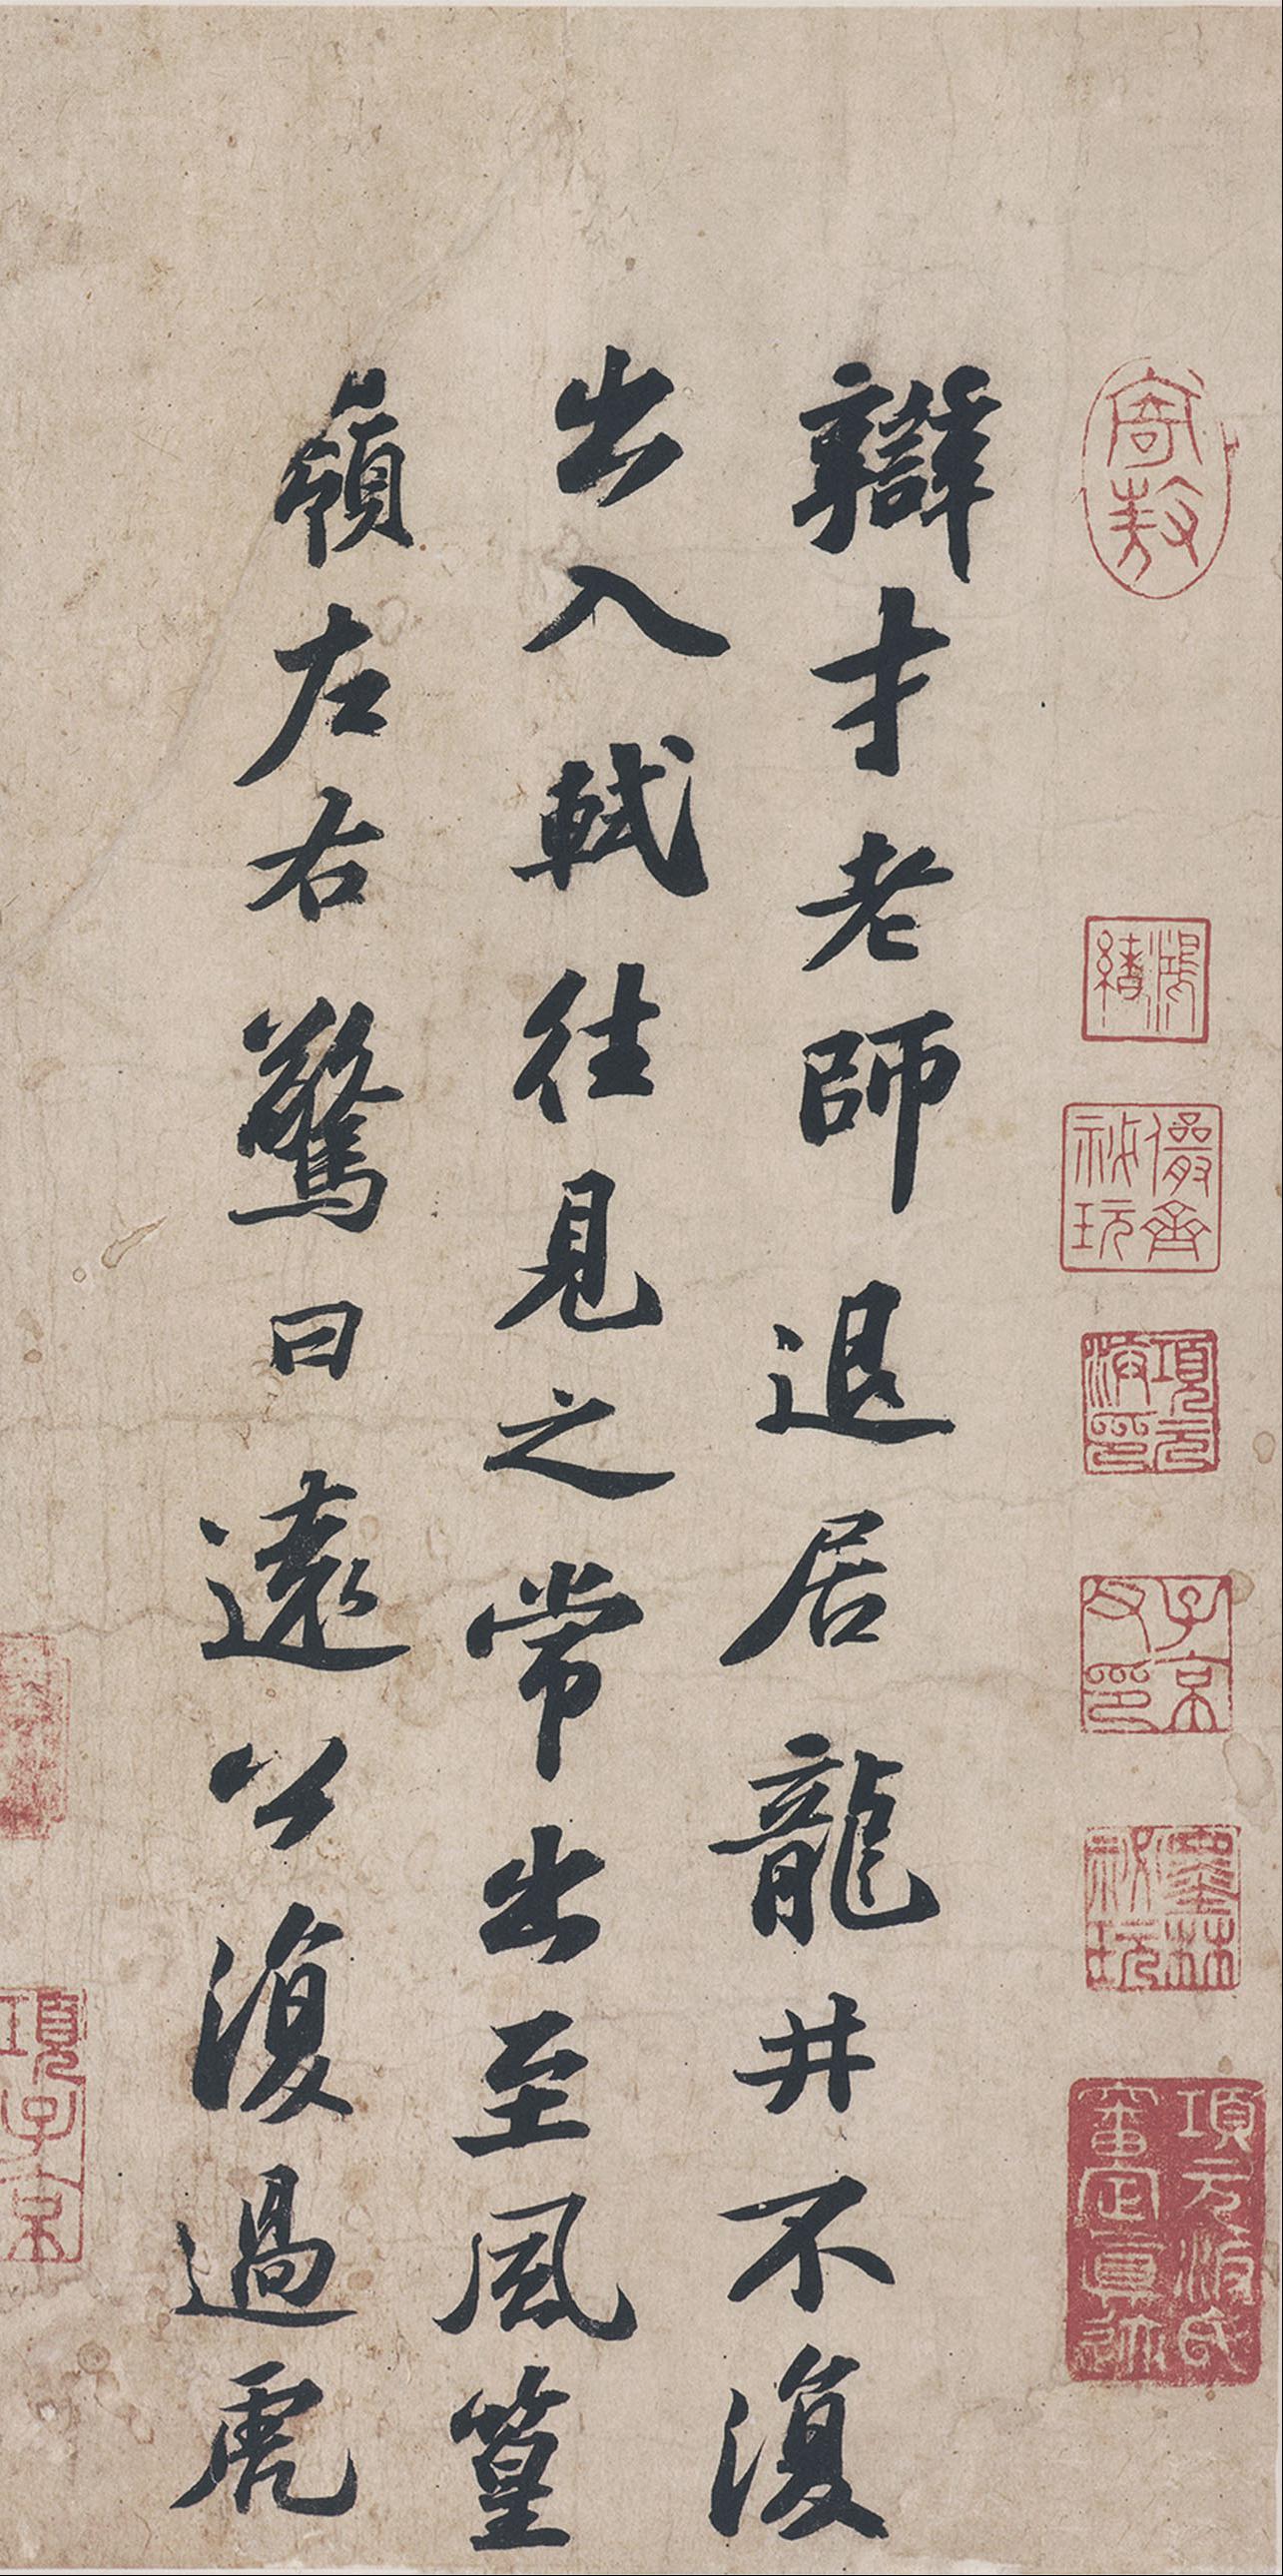 辯才老師退居龍井不復
出入軾往見之常出至風篁
嶺左右驚曰遠公復過虎
寄敖
鴻緒
儼齋秘玩
項元汴印
子京父印
墨林秘玩
項元汴氏審定真迹
項子京